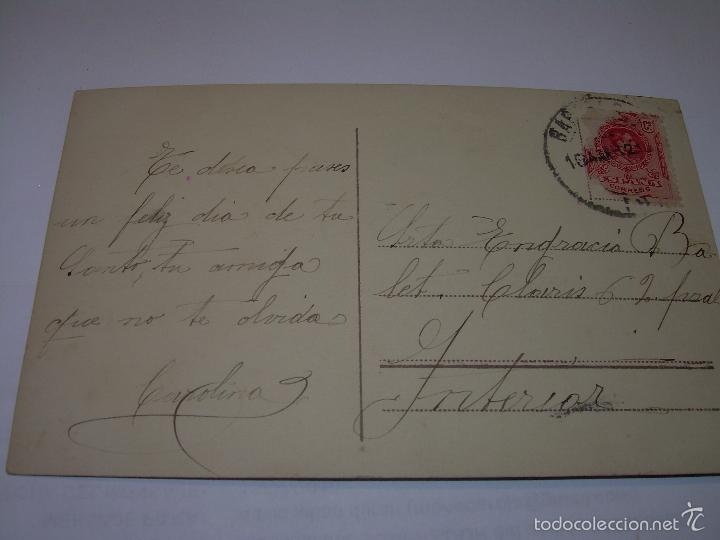 Te desea pases
un feliz dia de tu
Santo, tu amiga
que no te olvida
Carolina
BAR
15 ABR 12
ESPAÑA
CORREOS
Srta Engracia Ba
let. Claris 62 pral
Interior
todocoleccion.net